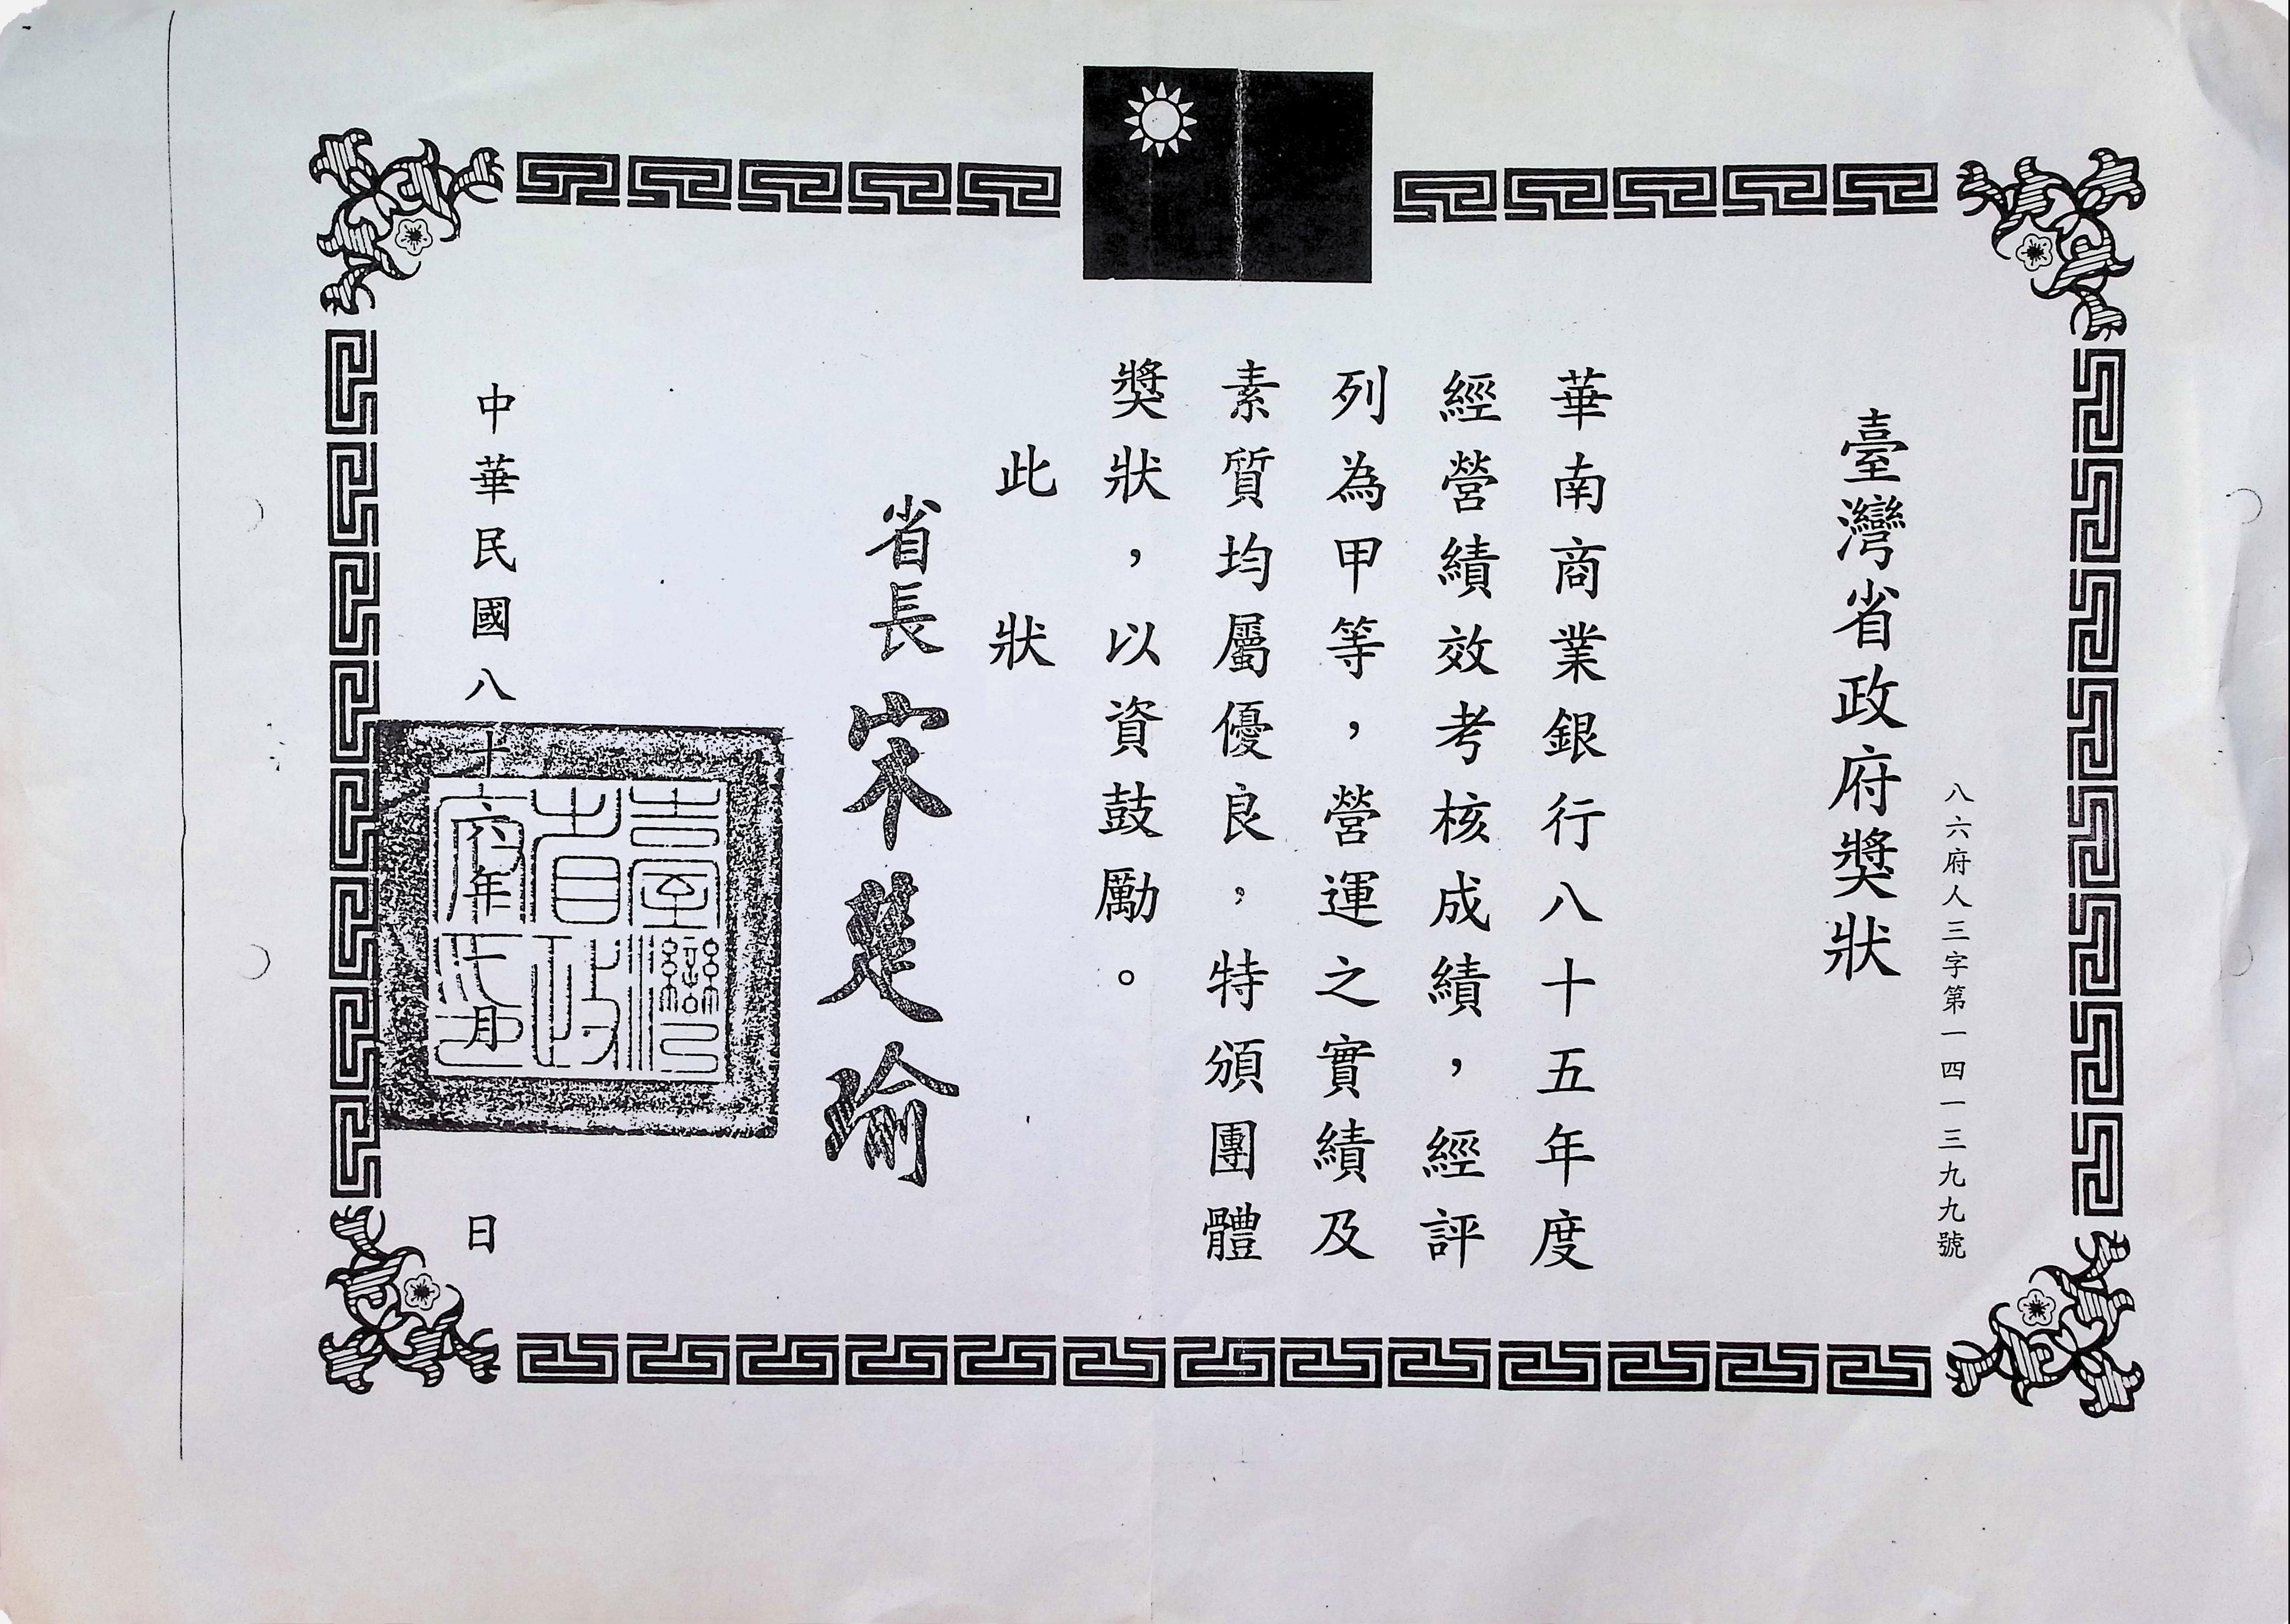 臺灣省政府獎狀
八六府人三字第一四一三九九號
華南商業銀行八十五年度
經營績效考核成績，經評
列為甲等，營運之實績及
素質均屬優良，特頒團體
獎狀，以資鼓勵。
此狀
省長 宋楚瑜
臺灣省政府印
中華民國八十六年十一月 日